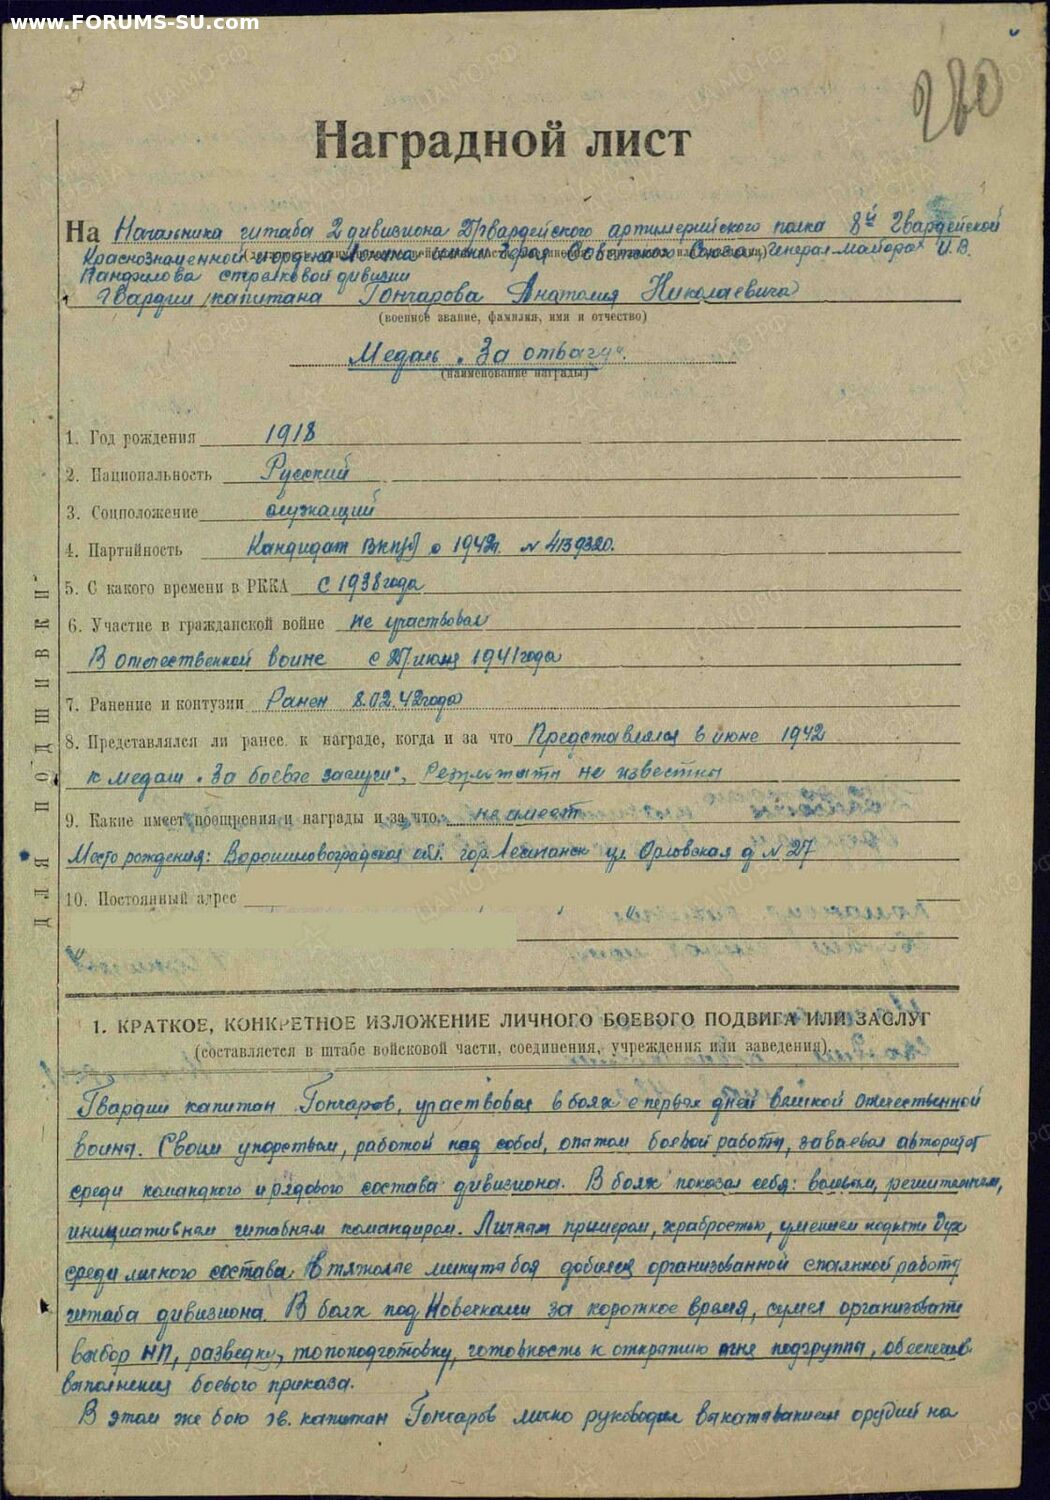 www.FORUMS-SU.com
280
Наградной лист
На Начальника штаба 2 дивизиона 27 гвардейского артиллерийского полка 8й Гвардейской
Краснознаменной и ордена Ленина имени Героя Советского Союза генерал-майора И.В.
Панфилова стрелковой дивизии
Гвардии капитана Гончарова Анатолия Николаевича
(военное звание, фамилия, имя и отчество)
Медаль "За отвагу".
(наименование награды)
1. Год рождения 1918
2. Национальность Русский
3. Соцположение служащий
4. Партийность Кандидат ВКП(б) с 1942г. № 4139320.
5. С какого времени в РККА с 1938 года
6. Участие в гражданской войне не участвовал
В отечественной войне с 27 июня 1941 года
7. Ранение и контузии Ранен 8.02.42 года
8. Представлялся ли ранее к награде, когда и за что Представлялся в июне 1942
к медали "За боевые заслуги", Результаты не известны
9. Какие имеет поощрения и награды и за что не имеет
Место рождения: Ворошиловоградская обл. гор. ул. Орловская д № 27
10. Постоянный адрес
ДЛЯ ПОДШИВКИ
1. КРАТКОЕ, КОНКРЕТНОЕ ИЗЛОЖЕНИЕ ЛИЧНОГО БОЕВОГО ПОДВИГА ИЛИ ЗАСЛУГ
(составляется в штабе войсковой части, соединения, учреждения или заведения).
Гвардии капитан Гончаров, участвовал в боях с первых дней великой отечественной
войны. Своим упорством, работой над собой, опытом боевой работы, завоевал авторитет
среди командного и рядового состава дивизиона. В боях показал себя: волевым, решительным,
инициативным штабным командиром. Личным примером, храбростью, умением поднять дух
среди личного состава. В тяжолые минуты боя добился организованной спаянной работы
штаба дивизиона. В боях под Новосёлками за короткое время, сумел организовать
выбор НП, разведку, топоподготовку, готовность к открытию огня подгруппы, обеспечив
выполнения боевого приказа.
В этом же бою гв. капитан Гончаров лично руководил выкатыванием орудий на